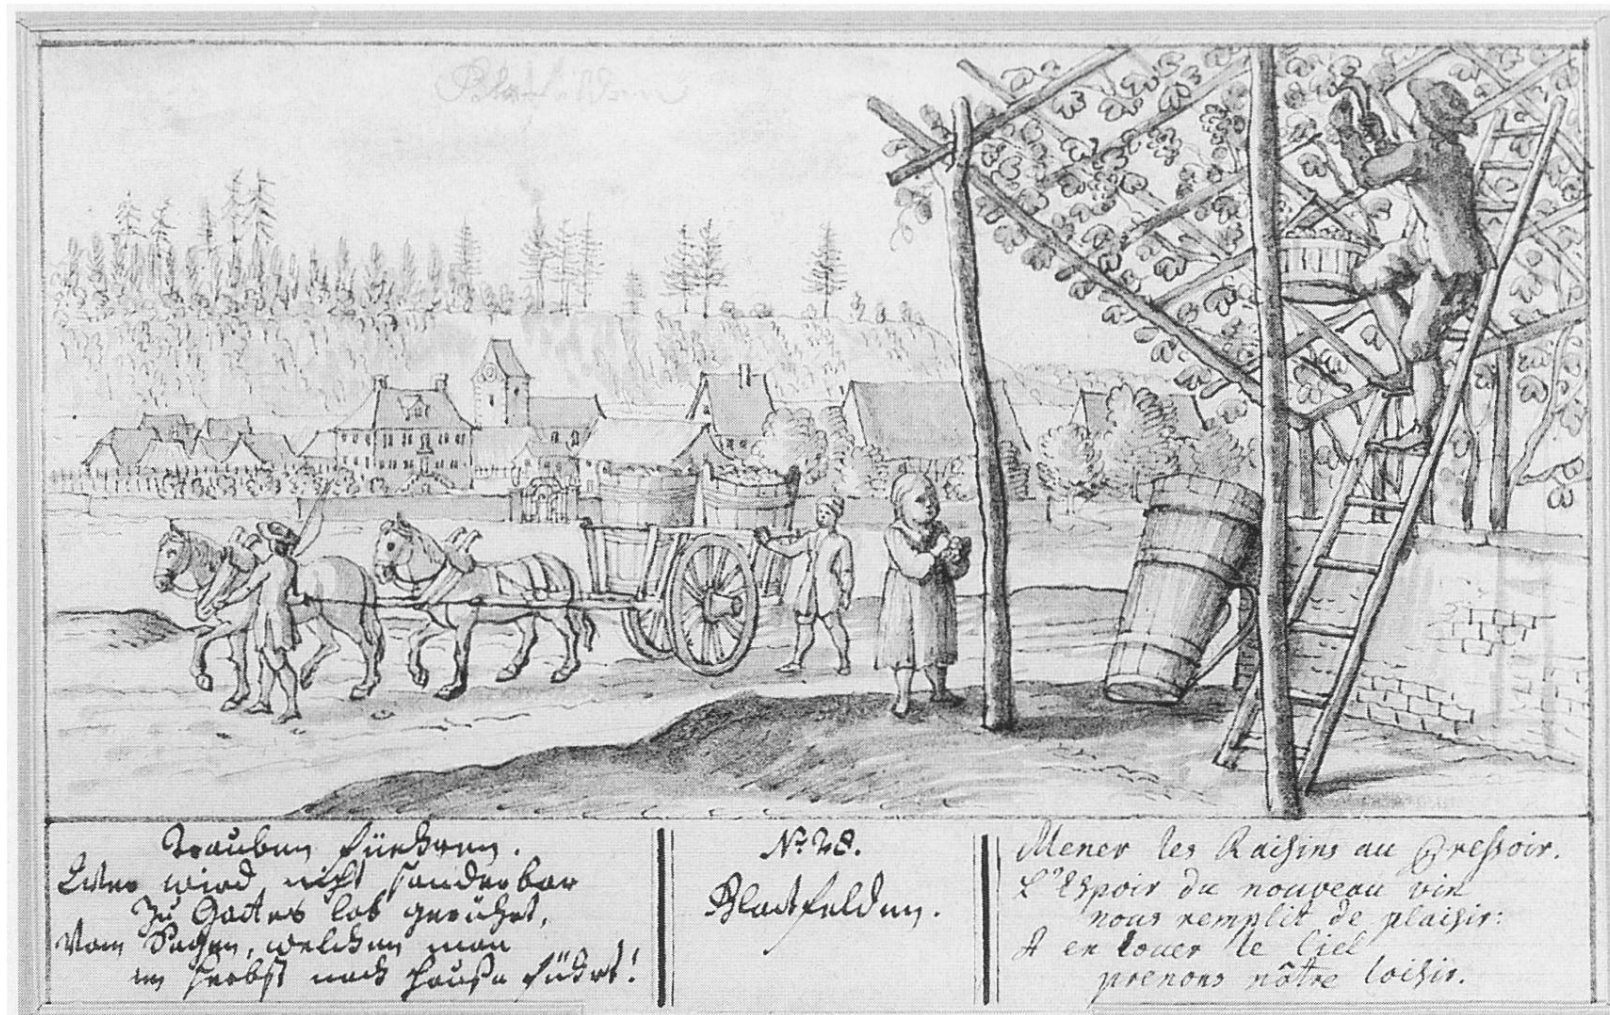 Trauben füehren.
Wer wird nicht sonderbar
Zu Gottes lob gerührt,
Vom Segen, welchen man
im herbst nach hause führt!
No. 28.
Glattfelden.
Mener les Raisins au Pressoir.
L'Espoir du nouveau vin
nous remplit de plaisir:
A en louer le Ciel
prenons nôtre loisir.